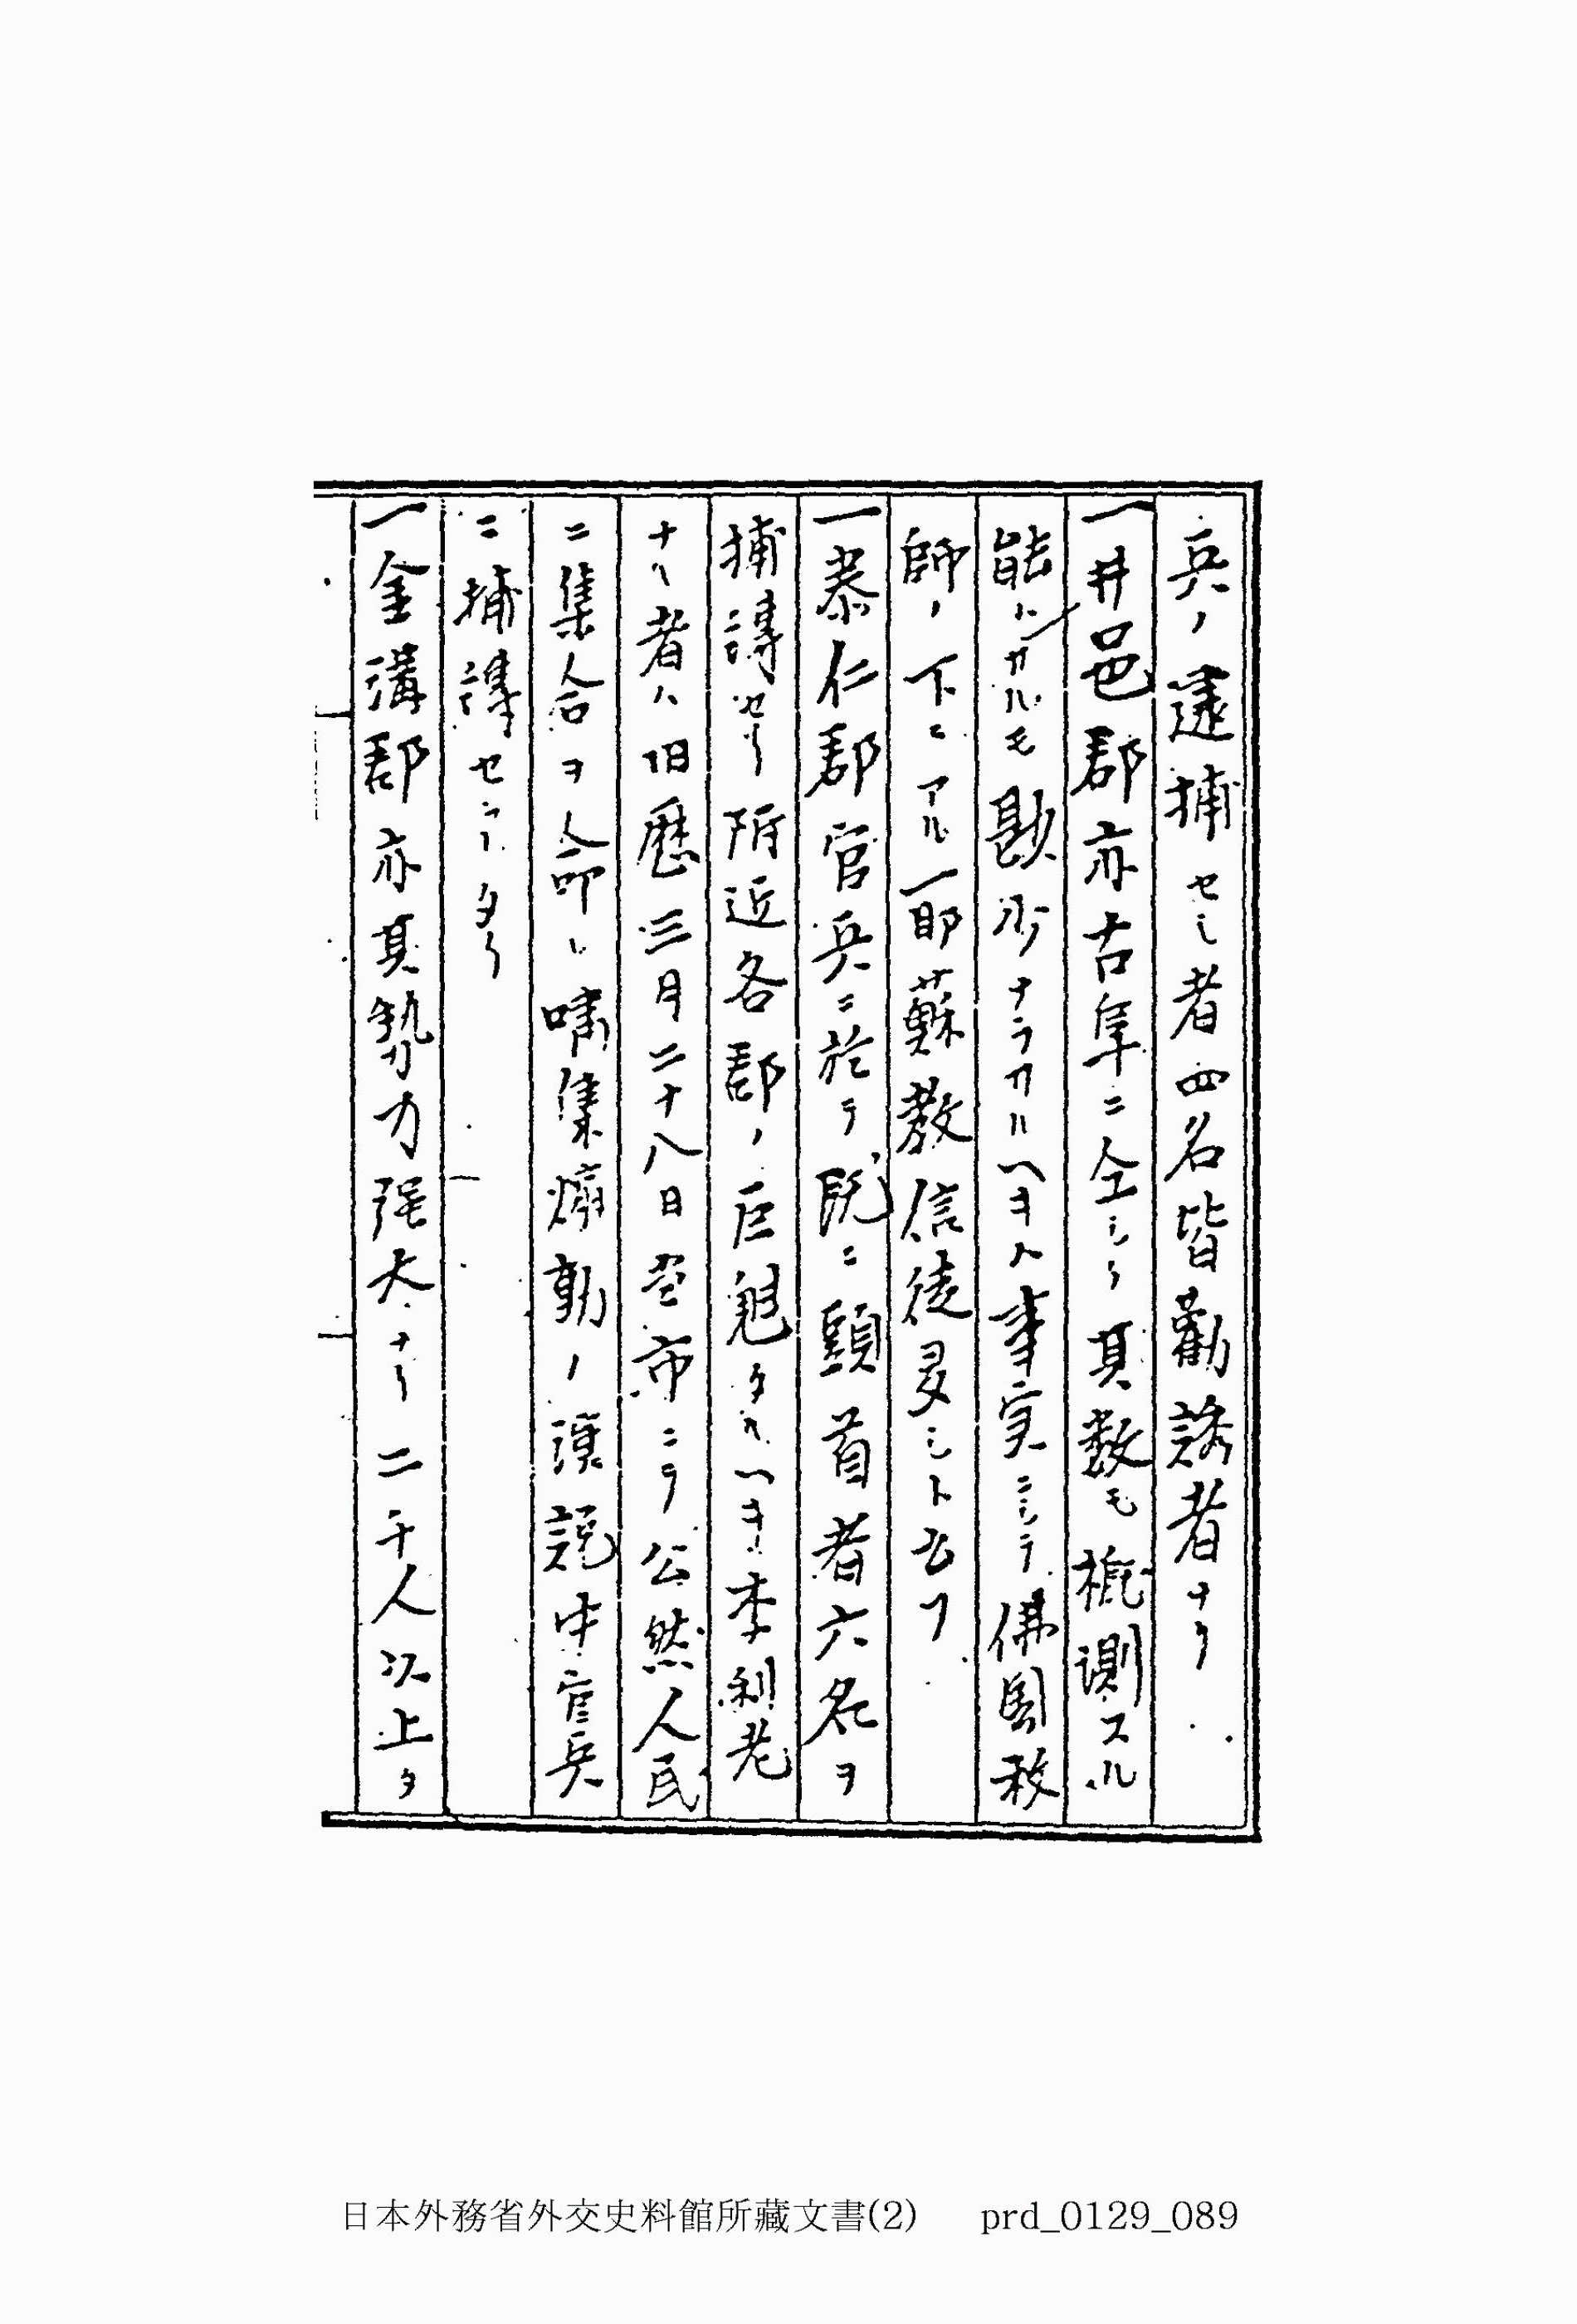 兵ノ逮捕セシ者四名皆勸誘者ナリ
一井邑郡亦古阜ニ仝シク其数モ概測スル
能ハサルモ尠少ナラサルヘキハ事実ニシテ佛国教
師ノ下ニアル耶蘇教信徒多シト云フ
一泰仁郡官兵ニ於テ既ニ頭首者六名ヲ
捕講セリ附近各郡ノ巨魁タルヘキ李利老
ナル者ハ旧歴三月二十八日全市ニテ公然人民
ニ集合ヲ命シ嘯集煽動ノ演説中官兵
ニ捕講セラレタリ
一金溝郡亦其勢力强大ナリ二千人以上タ
日本外務省外交史料館所藏文書(2) prd_0129_089